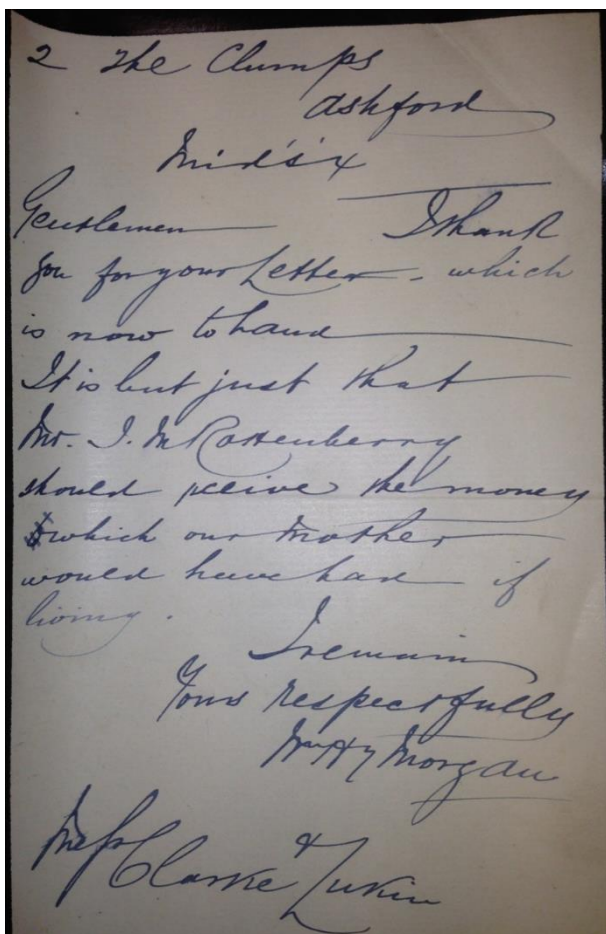 2 The Clumps
Ashford
Mid's'x
Gentlemen I thank
you for your Letter - which
is now to hand
It is but just that
Mr. J. M Rottenberry
should receive the money
which our Mother
would have had if
living.
I remain
Yours respectfully
Wm Hy Morgan
Messrs Clarke & Lukin